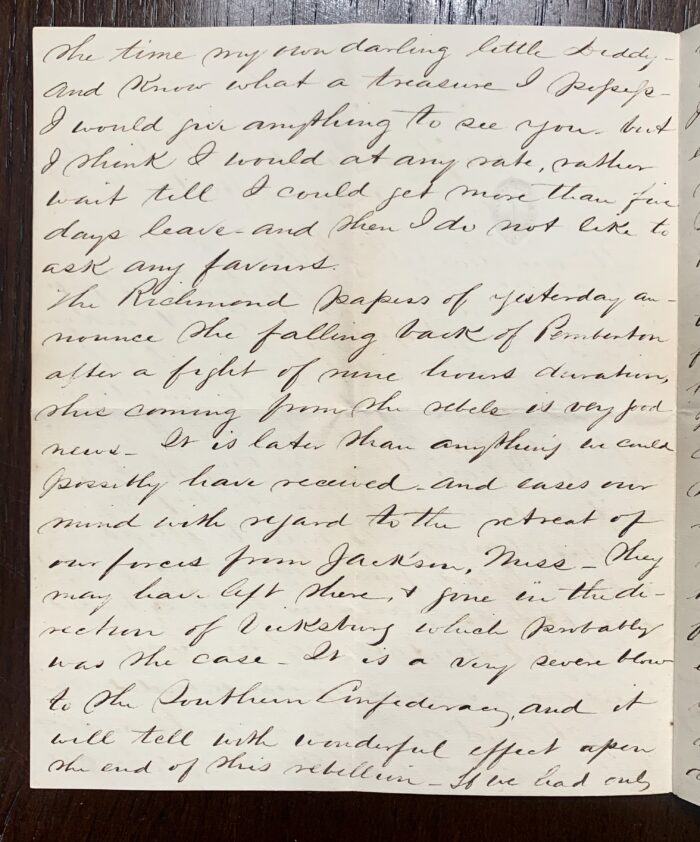 the time my own darling little Deddy-
and know what a treasure I possess-
I would give anything to see you. but
I think I would at any rate, rather
wait till I could get more than five
days leave - and then I do not like to
ask any favours.
The Richmond papers of yesterday an-
nounce the falling back of Pemberton
after a fight of nine hours duration,
this coming from the rebels is very good
news - It is later than anything we could
possibly have received - and eases our
mind with regard to the retreat of
our forces from Jackson, Miss - They
may have left there, & gone in the di-
rection of Vicksburg which probably
was the case - It is a very severe blow
to the Southern Confederacy, and it
will tell with wonderful effect upon
the end of this rebellion - If we had only